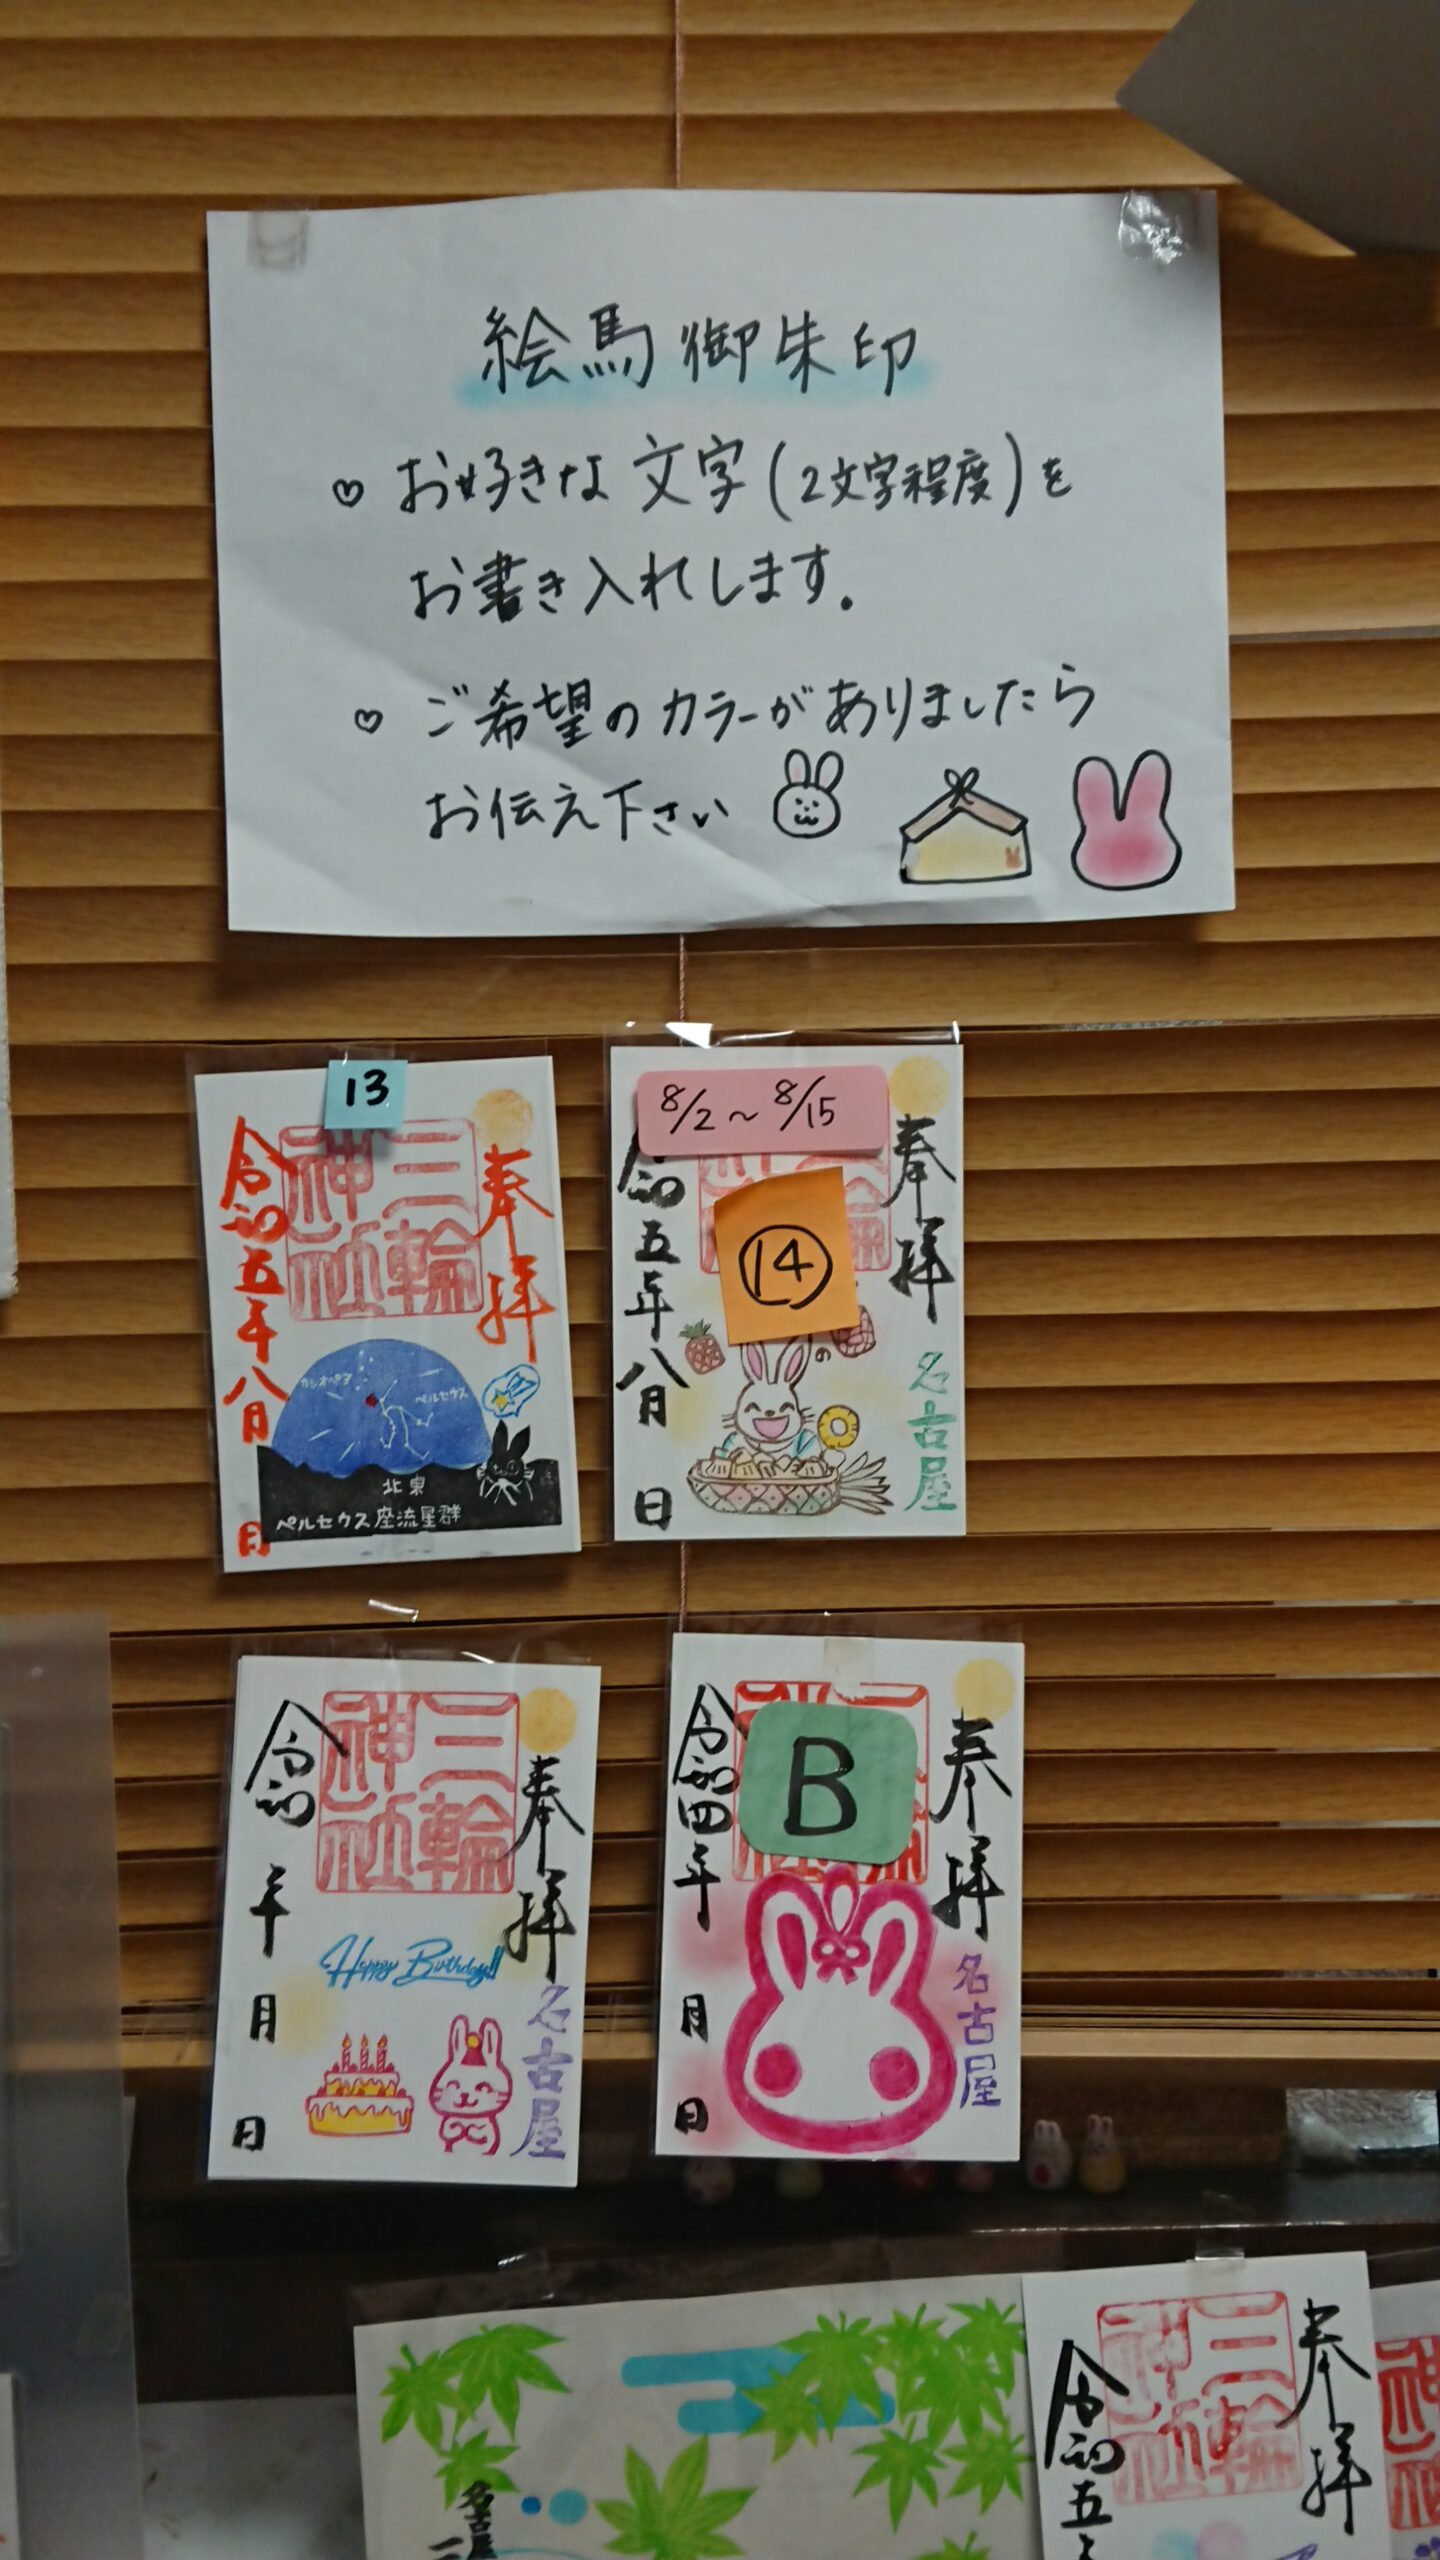 絵馬御朱印
♡ お好きな文字(2文字程度)を
お書き入れします.
♡ ご希望のカラーがありましたら
お伝え下さい
13
奉拝
三輪神社
令和五年八月 日
カシオペア
ペルセウス
北東
ペルセウス座流星群
8/2～8/15
⑭
奉拝
名古屋
の
令和五年八月 日
奉拝
名古屋
三輪神社
令和 年 月 日
Happy Birthday!!
B
奉拝
名古屋
令和四年 月 日
名古屋
奉拝
三輪神社
令和五